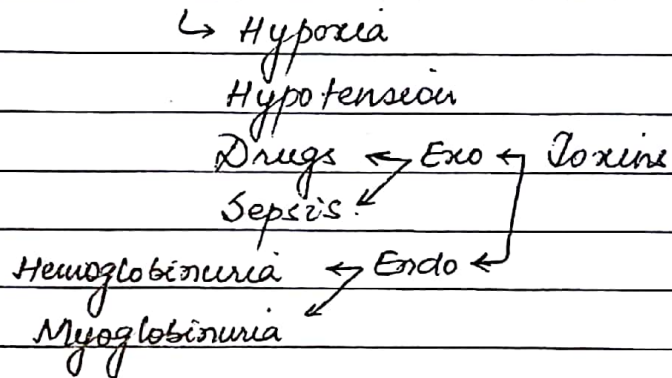 ↳ Hypoxia
Hypotension
Drugs ← Exo ← Toxins
Sepsis.
Hemoglobinuria ← Endo ←
Myoglobinuria